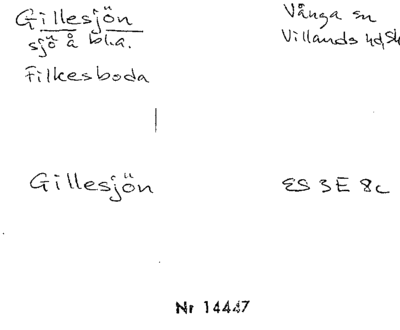 Gillesjön
sjö å bl.a.
Filkesboda
Vånga sn
Villands hd, Sk
Gillesjön
ES 3E 8c
Nr 14447